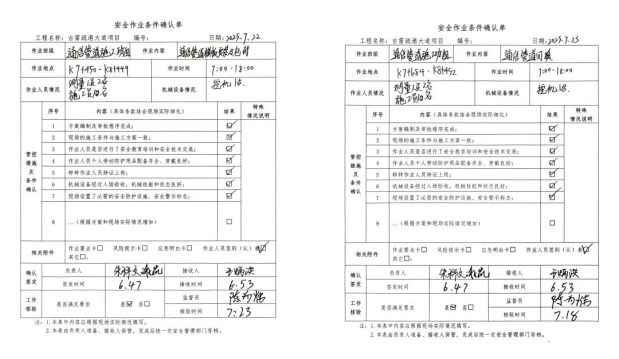 安全作业条件确认单
项目名称：古雷疏港大道项目 编号： 日期：2025.7.22
作业班组 通信管道施工班组 作业内容
作业地点 作业时间 7:00-18:00
作业人员情况 测量员2名 施工员10名 机械设备情况 挖机1台
管控措施及条件确认
序号 内容（具体条款结合现场实际细化） 结果 特殊情况说明
1 方案编制及审批程序完成； ☑
2 现场的施工条件与施工方案一致； ☑
3 作业人员是否进行了安全教育培训和安全技术交底； ☑
4 作业人员个人劳动防护用品配备齐全、穿戴良好； ☑
5 特种作业人员持证上岗； ☑
6 机械设备经过入场验收，机械性能和状态良好； ☑
7 现场设置了必要的安全防护设施、安全警示标志； ☑
8 …（根据方案和现场实际情况增加） □
相关附件 作业要点卡□ 风险提示卡□ 应急明白卡□ 作业人员签到（认）表☑
其它□。
确认签发 负责人 接收人
签发时间 6.47 接收时间 6.53
工作核验 是否满足要求 是☑ 否□ 监督员
核验时间 7:23
注：1.本表中内容应根据现场实际情况填写。
2.本表由负责人准备、接收人保管，完成后统一交安全管理部门存档。
安全作业条件确认单
项目名称：古雷疏港大道项目 编号： 日期：2025.7.23
作业班组 通信管道施工班组 作业内容 通信管道回填
作业地点 作业时间 7:00-18:00
作业人员情况 测量员2名 施工员10名 机械设备情况 挖机1台
管控措施及条件确认
序号 内容（具体条款结合现场实际细化） 结果 特殊情况说明
1 方案编制及审批程序完成； ☑
2 现场的施工条件与施工方案一致； ☑
3 作业人员是否进行了安全教育培训和安全技术交底； ☑
4 作业人员个人劳动防护用品配备齐全、穿戴良好； ☑
5 特种作业人员持证上岗； ☑
6 机械设备经过入场验收，机械性能和状态良好； ☑
7 现场设置了必要的安全防护设施、安全警示标志； ☑
8 …（根据方案和现场实际情况增加） □
相关附件 作业要点卡□ 风险提示卡□ 应急明白卡□ 作业人员签到（认）表☑
其它□。
确认签发 负责人 接收人
签发时间 6.47 接收时间 6.53
工作核验 是否满足要求 是☑ 否□ 监督员
核验时间 7.18
注：1.本表中内容应根据现场实际情况填写。
2.本表由负责人准备、接收人保管，完成后统一交安全管理部门存档。